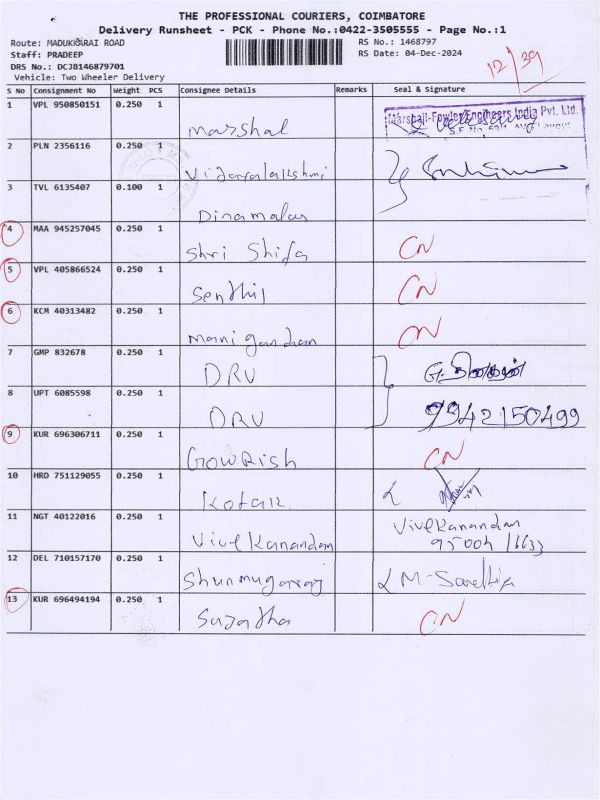 THE PROFESSIONAL COURIERS, COIMBATORE
Delivery Runsheet - PCK - Phone No.:0422-3505555 - Page No.:1
Route: MADUKKARAI ROAD
RS No.: 1468797
12/39
Staff: PRADEEP
RS Date: 04-Dec-2024
DRS No.: DCJB146879701
Vehicle: Two Wheeler Delivery
S No Consignment No Weight PCS Consignee Details Remarks Seal & Signature
1 VPL 950850151 0.250 1 Marshal Marshall-Fowler Engineers India Pvt. Ltd.
2 PLN 2356116 0.250 1 Vijayalakshmi
3 TVL 6135407 0.100 1 Dinamalar
4 MAA 945257045 0.250 1 Shri Shifa CN
5 VPL 405866524 0.250 1 Senthil CN
6 KCM 40313482 0.250 1 Manigandan CN
7 GMP 832678 0.250 1 DRV
8 UPT 6085598 0.250 1 DRV 9942150499
9 KUR 696306711 0.250 1 Gowrish CN
10 HRD 751129055 0.250 1 Kotak
11 NGT 40122016 0.250 1 Vivekanandan Vivekanandan
12 DEL 710157170 0.250 1 Shunmugaraj
13 KUR 696494194 0.250 1 Sujatha CN